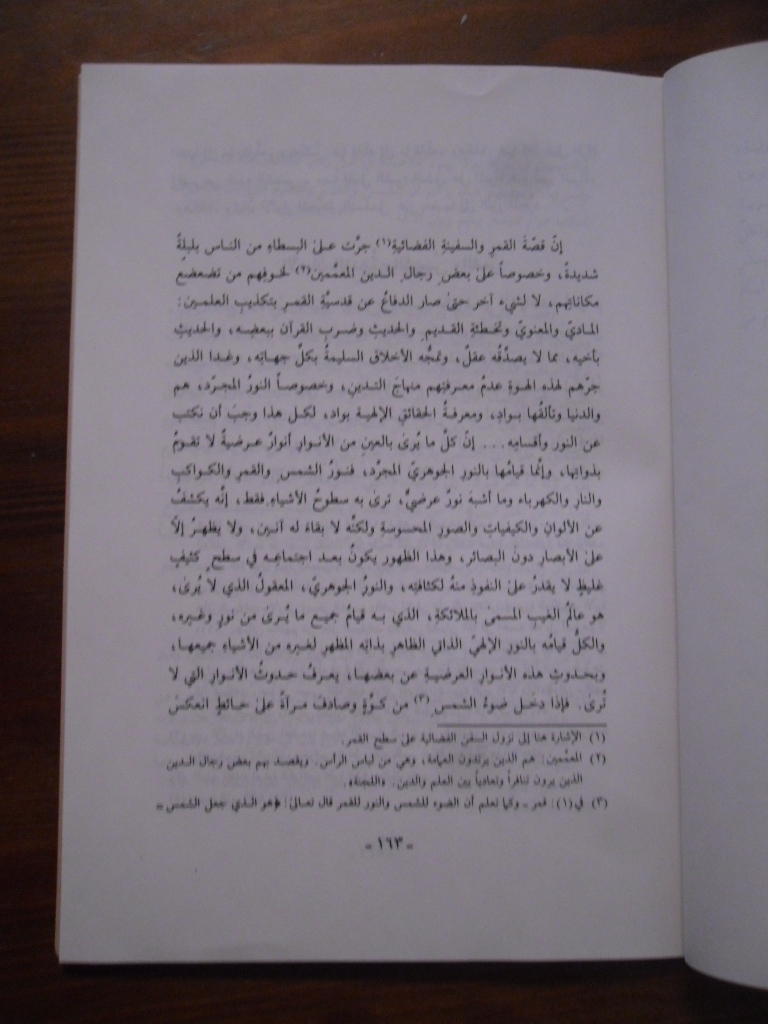 إنّ قصّةَ القمرِ والسفينةِ الفضائيةِ(١) جرَّت علىٰ البسطاءِ من الناس بليلةٍ
شديدةً، وخصوصاً علىٰ بعضِ رجالِ الدين المعمَّمين(٢) لخوفِهم من تضعضعِ
مكاناتِهم، لا لشيء آخر حتىٰ صار الدفاعُ عن قدسيَّةِ القمرِ بتكذيبِ العلمين:
الماديّ والمعنويّ وتخطئةِ القديمِ والحديثِ وضربِ القرآن ببعضِه، والحديثِ
بأخيه، مما لا يصدِّقُه عقلٌ، وتمجُّه الأخلاق السليمةُ بكلِّ جهاتِه، وغدا الذين
جرّهم لهذه الهوةِ عدمُ معرفتِهم منهاجَ التدينِ، وخصوصاً النورُ المجرّد، هم
والدنيا وتألقُها بوادٍ، ومعرفةُ الحقائقِ الإلهيةِ بواد، لكل هذا وجبَ أن نكتب
عن النورِ وأقسامِه... إنّ كلَّ ما يُرىٰ بالعينِ من الأنوارِ أنوارٌ عرضيةٌ لا تقومُ
بذواتِها، وإنَّما قيامُها بالنورِ الجوهريِّ المجرَّد، فنورُ الشمسِ والقمرِ والكواكبِ
والنارِ والكهرباء وما أشبهَ نورٌ عرضيٌّ، ترىٰ به سطوحُ الأشياءِ فقط، إنَّه يكشفُ
عن الألوانِ والكيفياتِ والصورِ المحسوسةِ ولكنَّه لا بقاءَ له آنين، ولا يظهرُ إلّا
علىٰ الأبصارِ دونَ البصائر، وهذا الظهور يكونُ بعد اجتماعِه في سطحٍ كثيفٍ
غليظٍ لا يقدرُ علىٰ النفوذِ منهُ لكثافتِه، والنورُ الجوهريّ، المعقولُ الذي لا يُرىٰ،
هو عالمُ الغيبِ المسمىٰ بالملائكةِ، الذي به قيامُ جميعِ ما يُرىٰ من نورٍ وغيرِه،
والكلُّ قيامُه بالنورِ الإلهيِّ الذاتي الظاهرِ بذاتِه المظهرِ لغيرِه من الأشياءِ جميعِها،
وبحدوثِ هذه الأنوارِ العرضيةِ عن بعضِها، يعرفُ حدوثُ الأنوارِ التي لا
تُرىٰ. فإذا دخَل ضوءُ الشمسِ(٣) من كوَّةٍ وصادفَ مرآةً علىٰ حائطٍ انعكسَ
(١) الإشارة هنا إلى نزول السفن الفضائية علىٰ سطح القمر.
(٢) المعمَّمين: هم الذين يرتدون العمامة، وهي من لباس الرأس. ويقصد بهم بعض رجال الدين
الذين يرون تنافراً وتعادياً بين العلم والدين. «اللجنة».
(٣) في (١): قمر ـ وكما تعلم أن الضوء للشمس والنور للقمر قال تعالىٰ: ﴿هو الذي جعل الشمس =
ـ ١٦٣ ـ